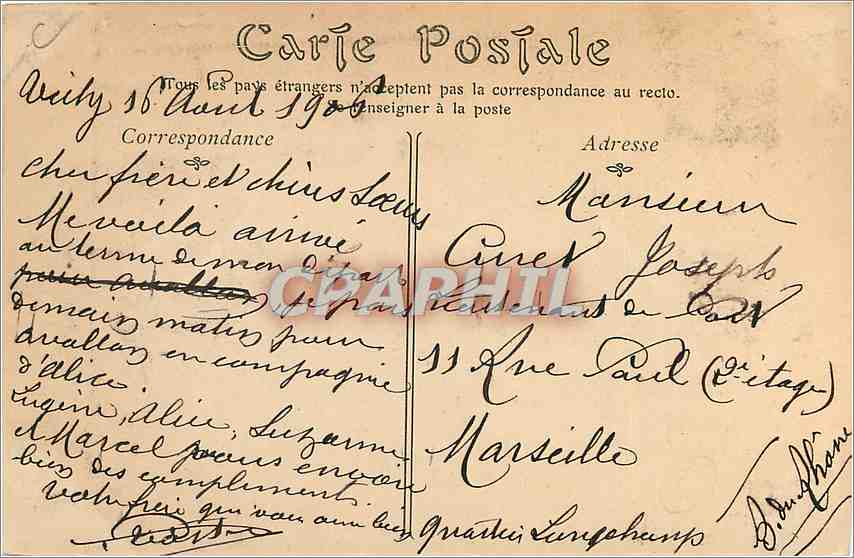 Carte Postale
Tous les pays étrangers n'acceptent pas la correspondance au recto.
Se renseigner à la poste
16 Août 190
Correspondance
cher frère et chères Sœurs
Me voilà arrivé
au terme de mon départ
pour avallon je pars
demain matin pour
avallon en compagnie
d'Alice
Eugène, Alice, Suzanne
et Marcel vous envoie
bien des compliments
votre frère qui vous aime bien
Adresse
Monsieur
Curet Joseph
Lieutenant de Port
11 Rue Paul (2e étage)
Marseille
quartier Longchamp
B. du Rhône
CPAPHIL